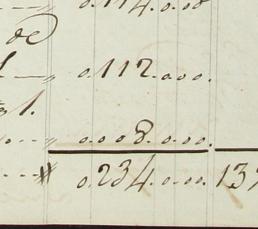 0.114.0.00
de
0.112.0.00.
1.
0.008.0.00.
0.234.0.00. 137